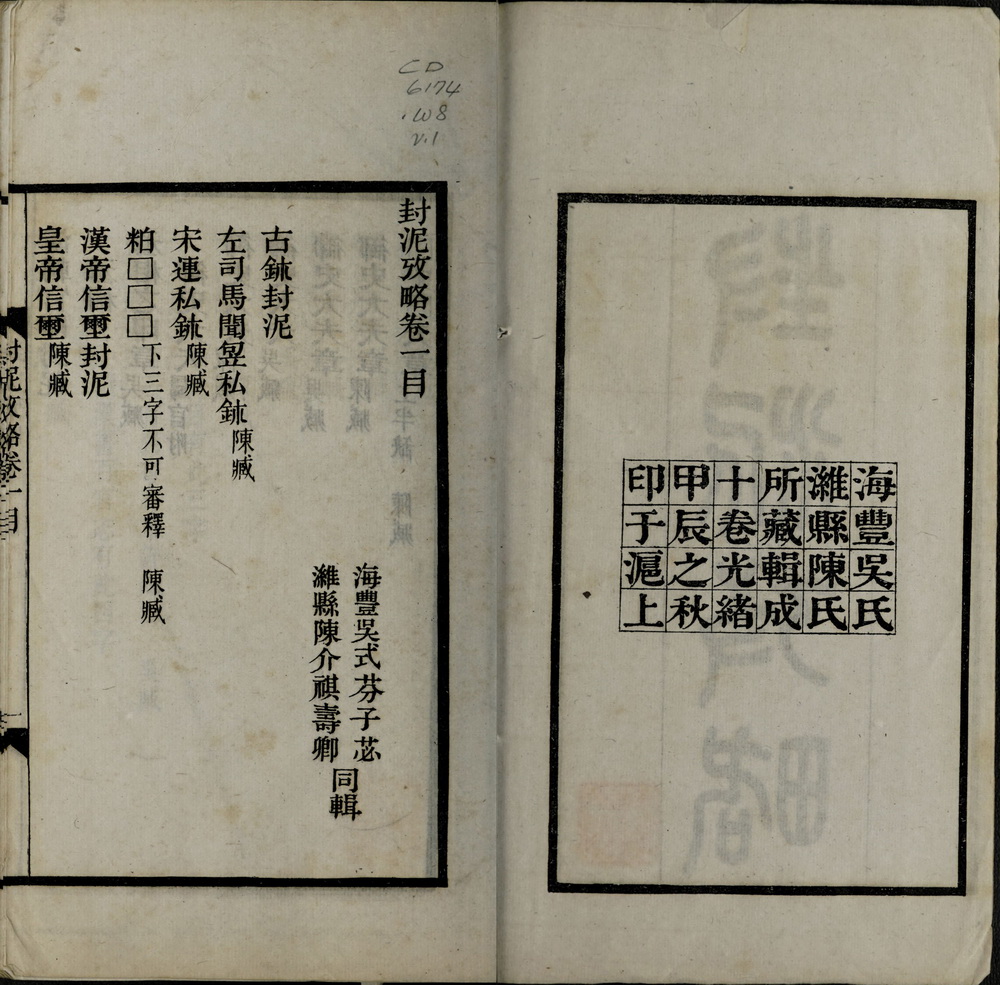 海豐吳氏
濰縣陳氏
所藏輯成
十卷光緒
甲辰之秋
印于滬上
CD
6174
.W8
v.1
封泥攷略卷一目
海豐吳式芬子苾
濰縣陳介祺壽卿
同輯
古鉥封泥
左司馬聞望私鉥 陳臧
宋連私鉥 陳臧
粕□□□ 下三字不可審釋 陳臧
漢帝信壐封泥
皇帝信壐 陳臧
封泥攷略卷一目
一